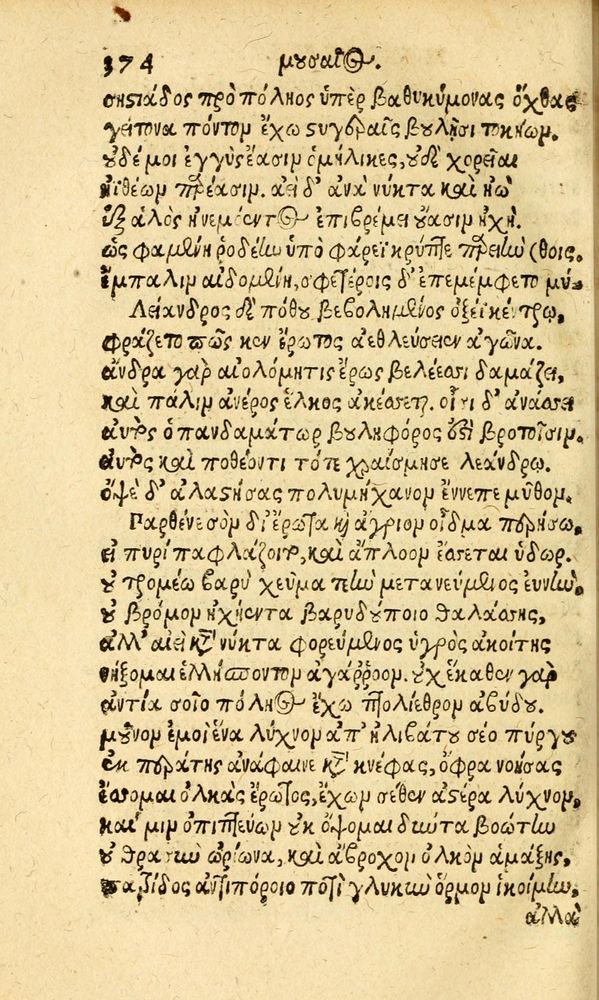 374 μουσαῖος.
σηστιάδος πρὸ πόληος ὑπὲρ βαθυκύμονας ὄχθας
γείτονα πόντομ ἔχω στυγεραῖς βουλῇσι τοκήωμ.
οὐδέ μοι ἐγγὺς ἔασιμ ὁμήλικες, οὐδὲ χορεῖαι
ἠϊθέωμ πρέασιμ. αἰεὶ δ' ἀνὰ νύκτα καὶ ἠῶ
ἐξ ἁλὸς ἠνεμόεντος ἐπιβρέμει οὔασιμ ἠχή.
ὣς φαμένη ῥοδέην ὑπὸ φάρεϊ κρύπτε παρειὴν (θοις.
ἔμπαλιμ αἰδομένη, σφετέροις δ' ἐπεμέμφετο μύ-
Λείανδρος δὲ πόθου βεβολημένος ὀξέϊ κέντρῳ,
φράζετο πῶς κεν ἔρωτος ἀεθλεύσειεν ἀγῶνα.
ἄνδρα γὰρ αἰολόμητις ἔρως βελέεσσι δαμάζει,
καὶ πάλιμ ἀνέρος ἕλκος ἀκέσσεται. οἷσι δ' ἀνάσσει
αὐτὸς ὁ πανδαμάτωρ βουληφόρος ἐστὶ βροτοῖσιμ.
αὐτὸς καὶ ποθέοντι τότε χραίσμησε λεάνδρῳ.
ὀψὲ δ' ἀλαστήσας πολυμήχανομ ἔννεπε μῦθομ.
Παρθένε σὸμ δι' ἔρωτα καὶ ἄγριομ οἶδμα περήσω,
εἰ πυρὶ παφλάζοιτο, καὶ ἄπλοομ ἔσσεται ὕδωρ.
οὐ τρομέω βαρὺ χεῦμα τεὴν μετανεύμενος εὐνήν,
οὐ βρόμομ ἠχήεντα βαρυδούποιο θαλάσσης,
ἀλλ' αἰεὶ κατὰ νύκτα φορεύμενος ὑγρὸς ἀκοίτης
νήξομαι ἑλλήσποντομ ἀγάρροομ. οὐχ ἕκαθεν γὰρ
ἀντία σοῖο πόληος ἔχω πτολίεθρομ ἀβύδου.
μοῦνομ ἐμοὶ ἕνα λύχνομ ἀπ' ἠλιβάτου σέο πύργου
ἐκ περάτης ἀνάφαινε κατὰ κνέφας, ὄφρα νοήσας
ἔσσομαι ὁλκὰς ἔρωτος, ἔχωμ σέθεν ἀστέρα λύχνομ,
καί μιμ ὀπιπτεύωμ οὐκ ὄψομαι δύοντα βοώτην
οὐ θρασὺν ὠρίωνα, καὶ ἄβροχομ ὁλκὸμ ἁμάξης,
πατρίδος ἀντιπόροιο ποτὶ γλυκὺν ὅρμομ ἱκοίμην.
ἀλλὰ